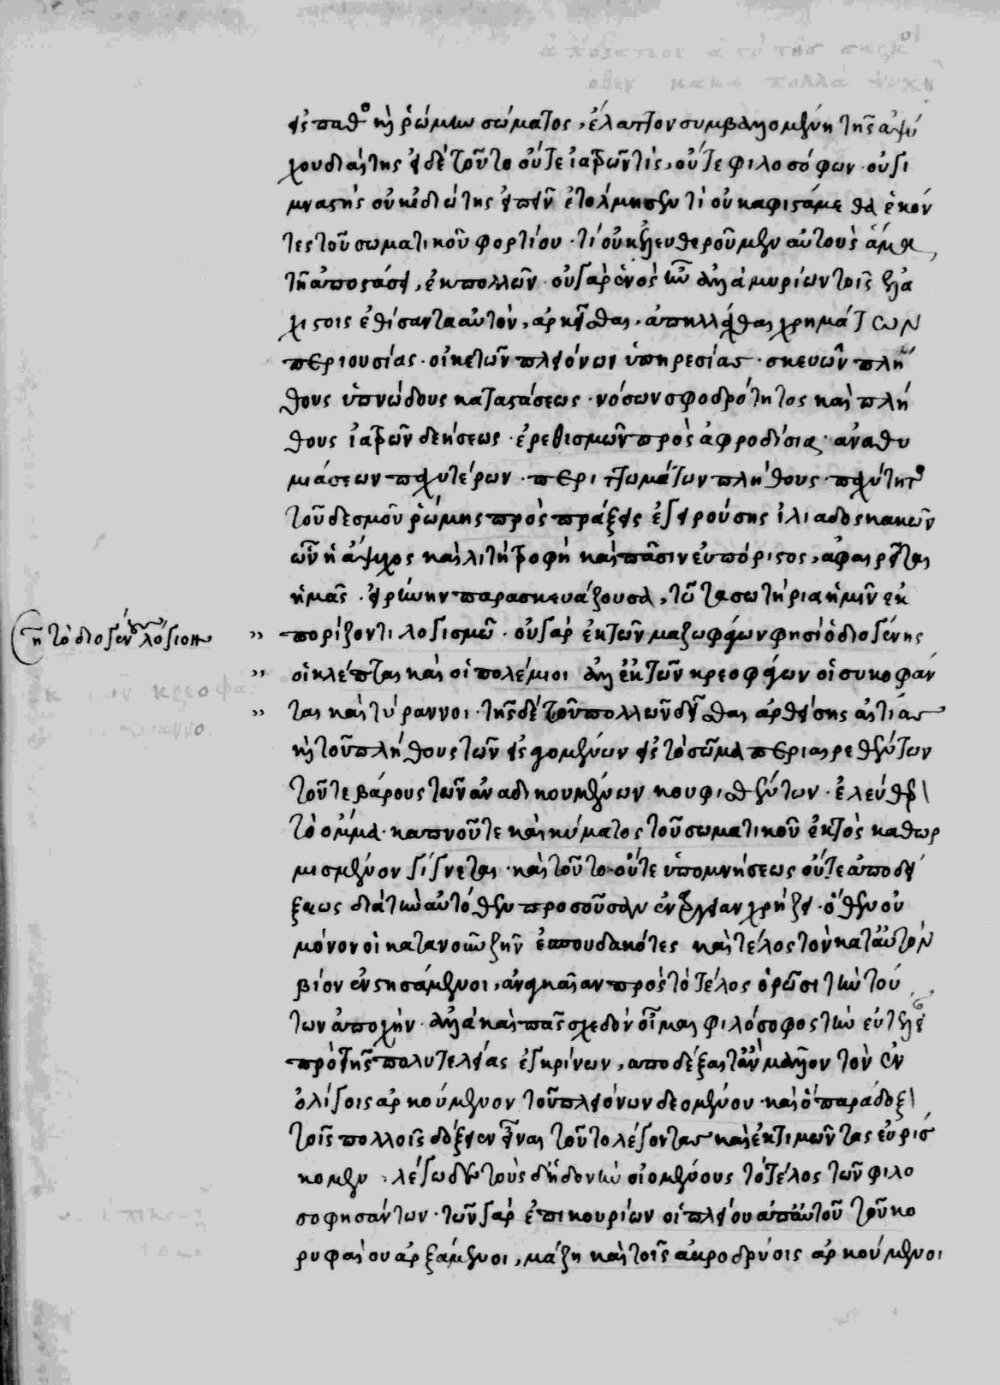 εἰς πάθος ἢ ῥώμην σώματος, ἔλαττον συμβαλλομένη τῆς ἀψύ
χου διαίτης· εἰ δὲ τοῦτο οὔτε ἰατρῶν τις, οὔτε φιλοσόφων οὐ γυ
μναστὴς οὐκ ἰδιώτης εἰπεῖν ἐτόλμησεν· τί οὐκ ἀφιστάμεθα ἑκόν
τες τοῦ σωματικοῦ φορτίου· τί οὐκ ἐλευθεροῦμεν αὑτοὺς ἅμα
τῇ ἀποστάσει, ἐκ πολλῶν· οὐ γὰρ ἑνὸς ἦν ἀλλὰ μυρίων τοῖς ἐλα
χίστοις ἐθίσαντα αὑτὸν, ἀρκεῖσθαι, ἀπηλλάχθαι χρημάτων
περιουσίας· οἰκετῶν πλειόνων ὑπηρεσίας· σκευῶν πλή
θους ὑπνώδους καταστάσεως· νόσων σφοδρότητος καὶ πλή
θους ἰατρῶν δεήσεως· ἐρεθισμῶν πρὸς ἀφροδίσια· ἀναθυ
μιάσεων παχυτέρων· περιττωμάτων πλήθους· παχύτητος
τοῦ δεσμοῦ ῥώμης πρὸς πράξεις ἐγειρούσης ἰλιάδος κακῶν
ὧν ἡ ἄψυχος καὶ λιτὴ τροφὴ καὶ πᾶσιν εὐπόριστος, ἀφαιρεῖται
ἡμᾶς· εἰρήνην παρασκευάζουσα, τῷ τὰ σωτήρια ἡμῖν ἐκ
πορίζοντι λογισμῷ· οὐ γὰρ ἐκ τῶν μαζοφάγων φησὶ ὁ διογένης
οἱ κλέπται καὶ οἱ πολέμιοι ἀλλ' ἐκ τῶν κρεοφάγων οἱ συκοφάν
ται καὶ τύραννοι· τῆς δὲ τοῦ πολλῶν δεῖσθαι ἀρθείσης αἰτίας
ἢ τοῦ πλήθους τῶν εἰσαγομένων εἰς τὸ σῶμα περιαιρεθέντων
τοῦ τε βάρους τῶν ἀναδιδομένων κουφισθέντων· ἐλεύθερον
τὸ ὄμμα· καπνοῦ τε καὶ κύματος τοῦ σωματικοῦ ἐκτὸς καθωρ
μισμένον γίγνεται· καὶ τοῦτο οὔτε ὑπομνήσεως οὔτε ἀποδεί
ξεως διὰ τὴν αὐτόθεν προσοῦσαν ἐνάργειαν χρῄζει· ὅθεν οὐ
μόνον οἱ κατὰ νοῦν ζῆν ἐσπουδακότες καὶ τέλος τὸν κατ' αὐτὸν
βίον ἐνστησάμενοι, ἀναγκαίαν πρὸς τὸ τέλος ὁρῶσι τὴν τού
των ἀποχήν· ἀλλὰ καὶ πᾶς σχεδὸν οἶμαι φιλόσοφος τὴν εὐτέλει
πρὸ τῆς πολυτελείας ἐγκρίνων, ἀποδέξαιτ' ἂν μᾶλλον τὸν ἐν
ὀλίγοις ἀρκούμενον τοῦ πλειόνων δεομένου· καὶ ὃ παράδοξον
τοῖς πολλοῖς δόξειεν εἶναι τοῦτο λέγοντας καὶ ἐκτιμῶντας εὑρίσ
κομεν· λέγω δὲ τοὺς δὴ ἡδονὴν οἰομένους τὸ τέλος τῶν φιλο
σοφησάντων· τῶν γὰρ ἐπικουρίων οἱ πλείους ἀπ' αὐτοῦ τοῦ κο
ρυφαίου ἀρξάμενοι, μάζῃ καὶ τοῖς ἀκροδρύοις ἀρκούμενοι